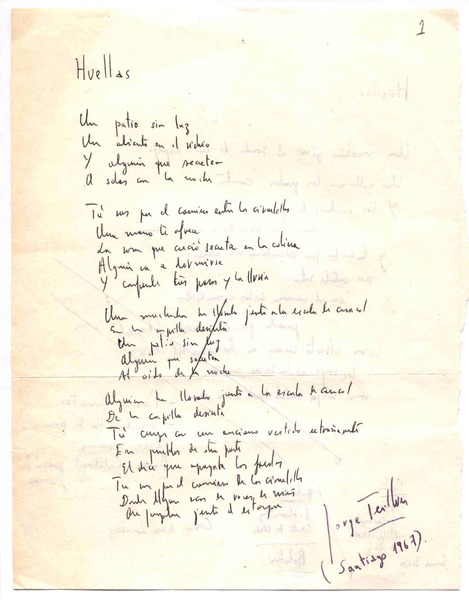 1
Huellas
Un patio sin luz
Un aliento en el vidrio
Y alguien que
A solas con la noche
Tú vas por el camino entre los ciruelos
Una mano te ofrece
La rosa que creció secreta en la colina
Alguien va a dormirse
Y confunde tus pasos y la lluvia
Una muchacha ha llorado junto a la escala de caracol
En la capilla desierta
Un patio sin luz
Alguien que
Al oído de la noche
Alguien ha llorado junto a la escala de caracol
De la capilla desierta
Tú con un anciano vestido extrañamente
En pueblos de otra parte
El día que apagaba los
Tú vas por el camino de los ciruelos
Donde llegan voces de niños
Que jugaban junto al estanque
Jorge Teillier
(Santiago 1967).